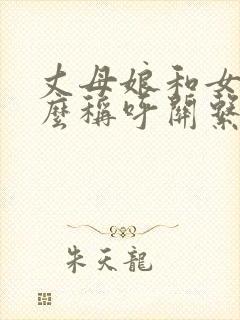 丈母娘和女
麼稱呼關繫
朱天龍